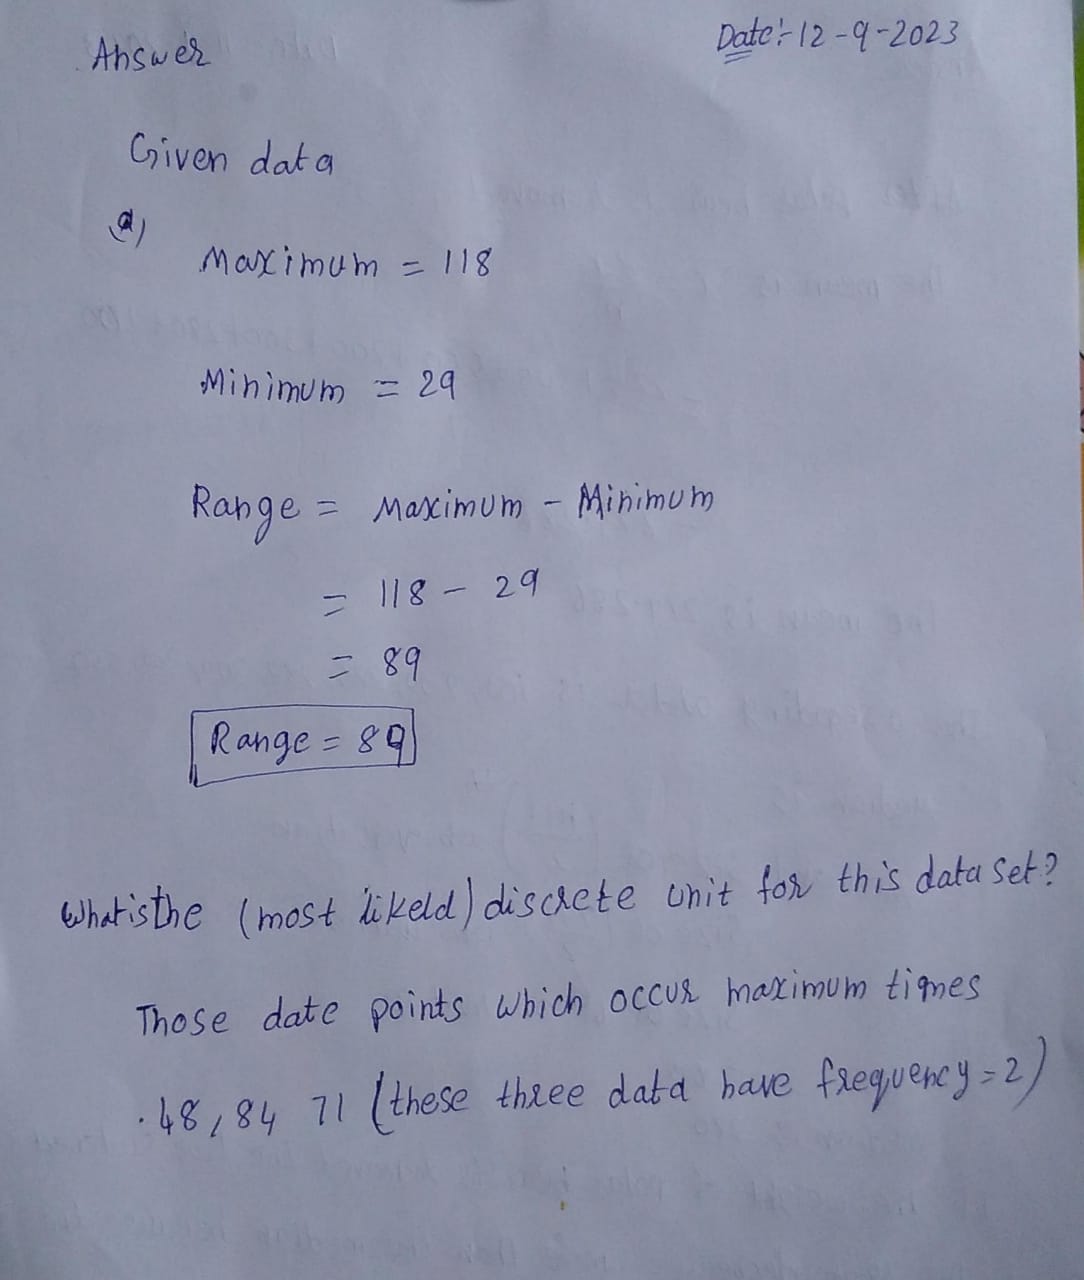 Answer
Date:- 12-9-2023
Given data
a)
Maximum = 118
Minimum = 29
Range = Maximum - Minimum
= 118 - 29
= 89
Range = 89
What is the (most likeld) discrete unit for this data set?
Those date points which occur maximum times
.48, 84 71 (these three data have frequency=2)